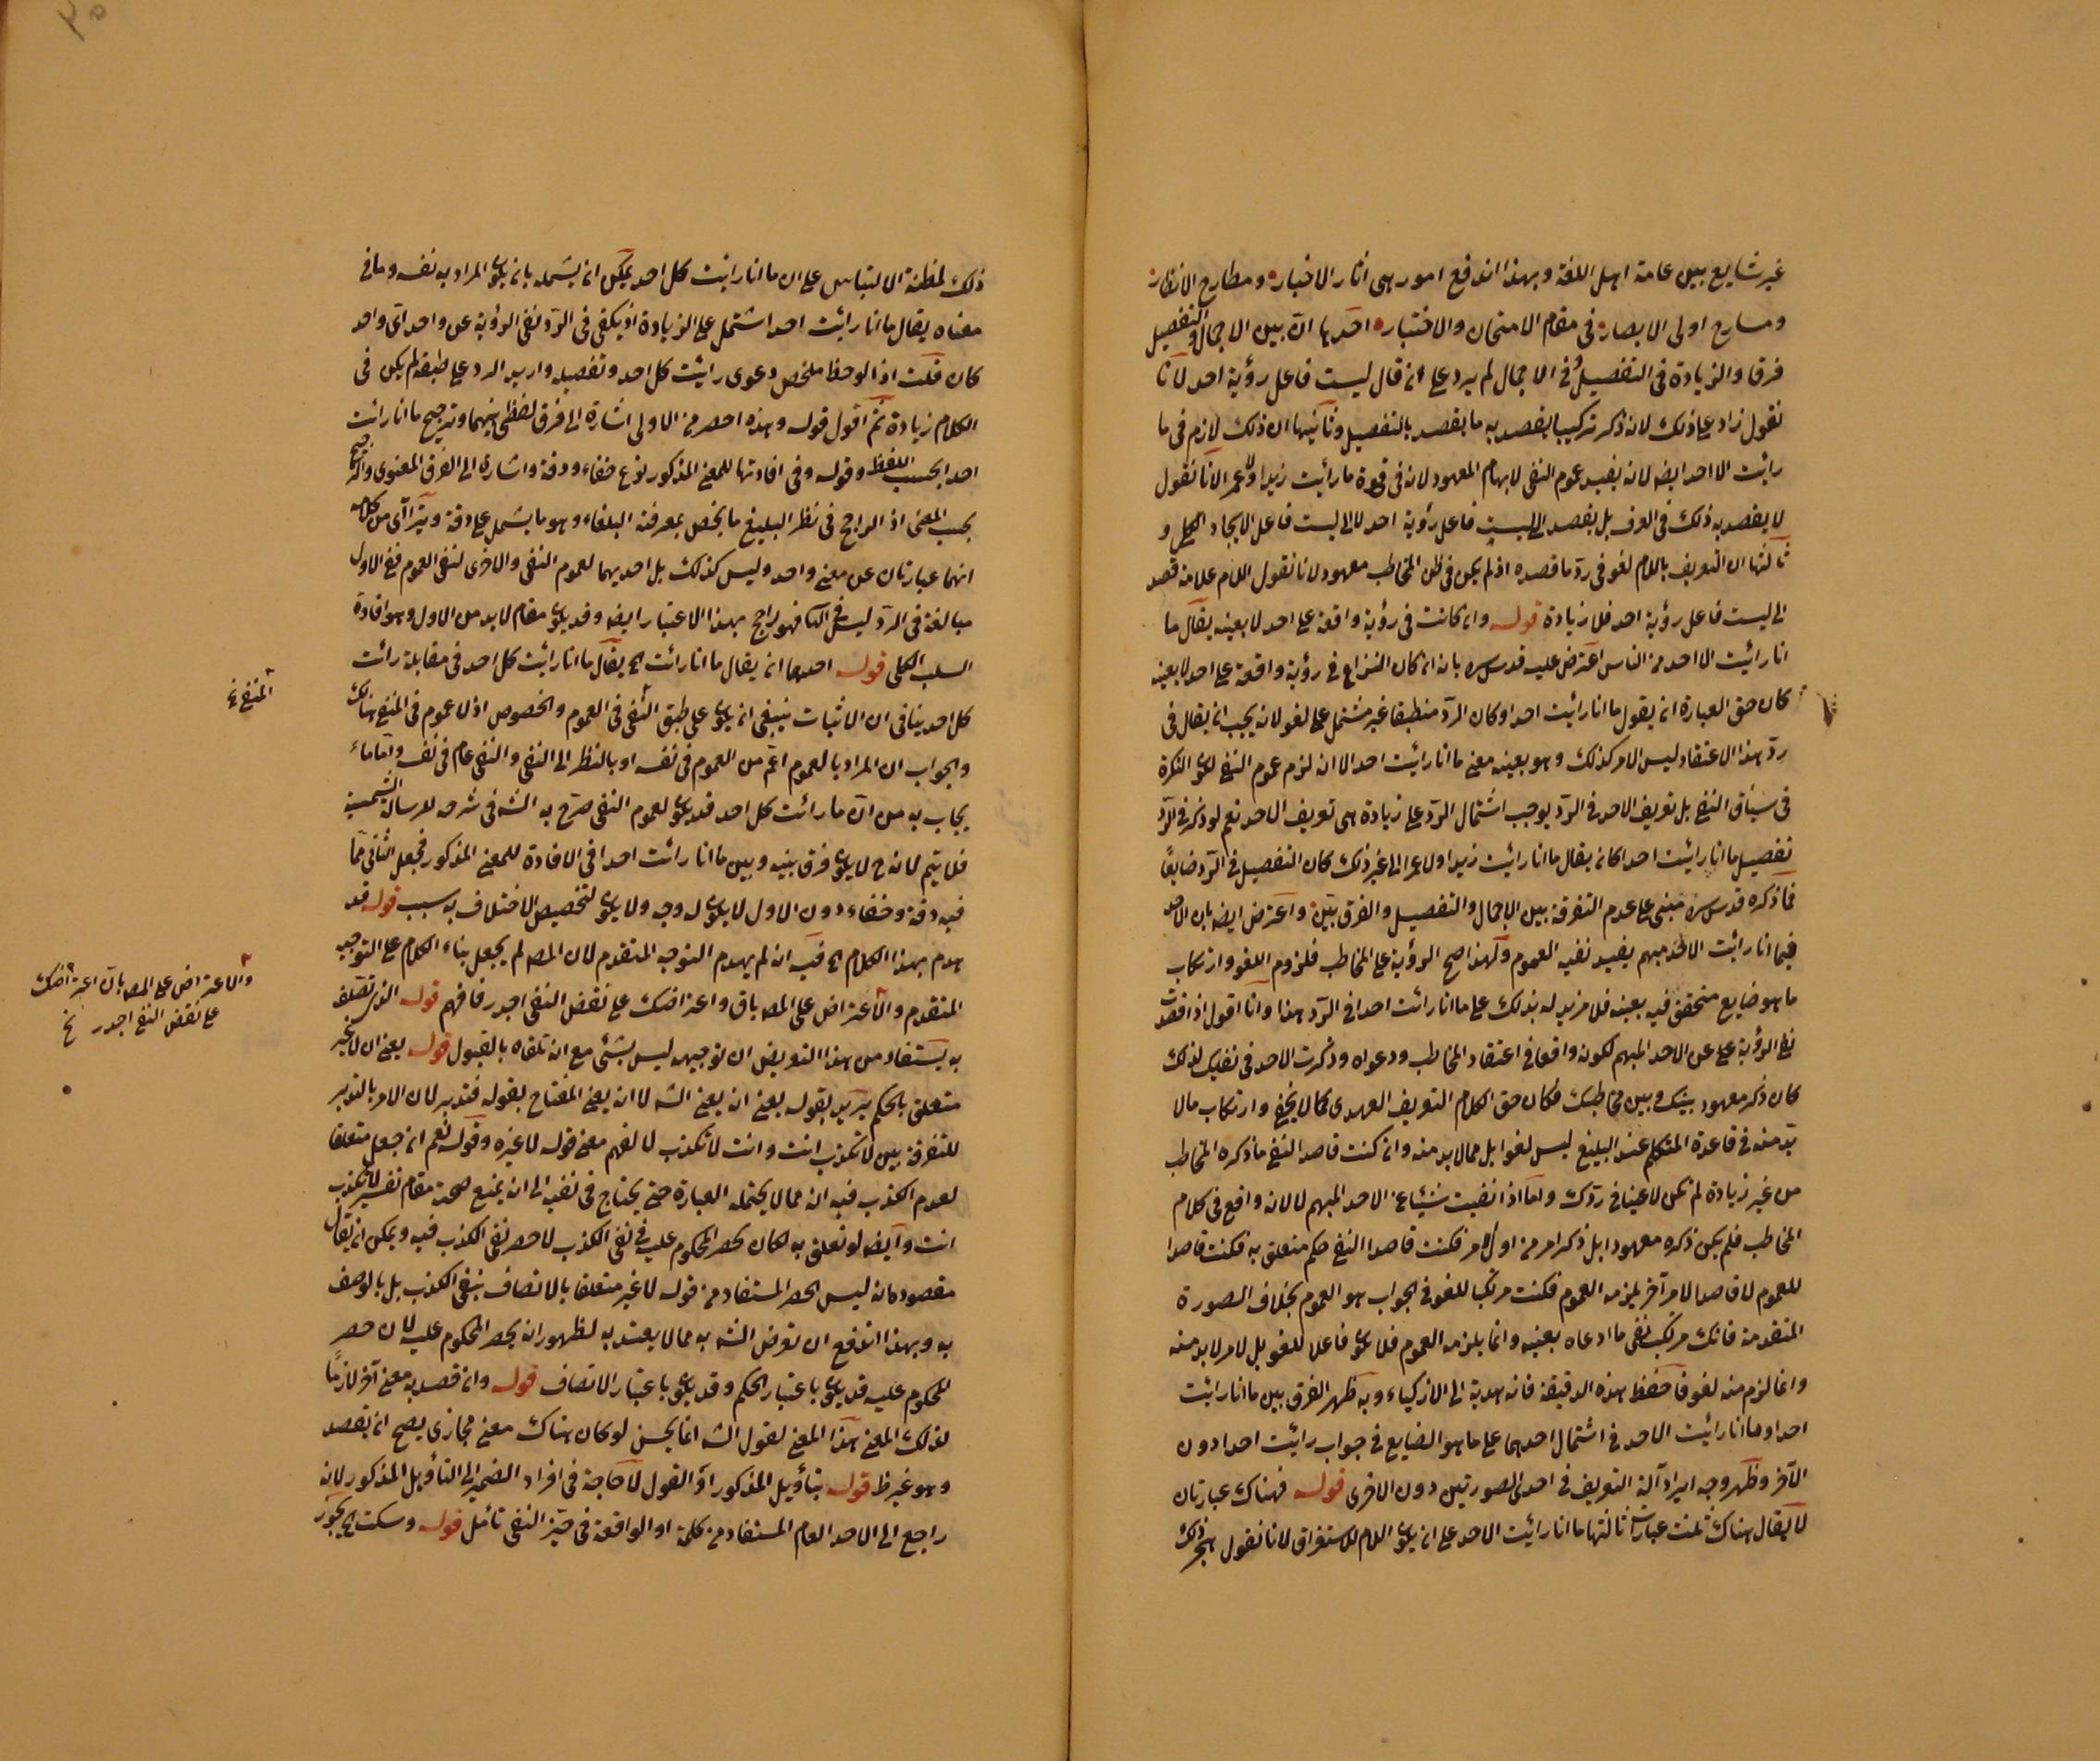 غير شايع بين عامة اهل اللغة وبهذا اندفع امور هى آثار الاخيار ومطارح الانظار
ومسارح اولى الابصار فى مقام الامتحان والاختبار احدها انّ بين الاجمال والتفصيل
فرقا والزيادة فى التفصيل لا فى الاجمال لم يرد على ان قال ليست فاعل رؤية احد لانا
نقول زاد على ذلك لانه ذكر تركيبا يقصد به ما يقصد بالتفصيل وثانيها ان ذلك لازم فى ما
رائت الا احد ايضا لانه يفيد عموم النفى لابهام المعهود لانه فى قوة ما رائت زيدا ولا عمرا لانا نقول
لا يقصد به ذلك فى العرف بل يقصد الى ليست فاعل رؤية احد لا الى ليست فاعل الايجاد الكلى و
ثالثها ان التعريف باللام لغو فى ردّ ما قصده اذ لم يكن فى ظن المخاطب معهود لانا نقول اللام علامة قصد
الى ليست فاعل رؤية احد فلا زيادة قوله وان كانت فى رؤية واقعة على احد لا بعينه يقال ما
انا رائت الا احد من الناس اعترض عليه قدس سره بانه ان كان النزاع فى رؤية واقعة على احد لا بعينه
كان حق العبارة ان يقول ما انا رائت احدا وكان الردّ منطبقا غير مشتمل على لغو لانه يجب ان يقال فى
ردّ هذا الاعتقاد ليس الامر كذلك وهو بعينه معنى ما انا رائت احدا الا ان لزم عموم النفى لكون النكرة
فى سياق النفى بل تعريف الاحد فى الردّ يوجب اشتمال الردّ على زيادة هى تعريف الاحد نعم لو ذكر فى الردّ
تفصيل ما انا رائت احدا كان يقال ما انا رائت زيدا ولا عمرا الى غير ذلك كان التفصيل فى الردّ ضايعا
فما ذكره قدس سره مبنى على عدم التفرقة بين الاجمال والتفصيل والفرق بيّن واعترض ايضا بان الاحد
فيما انا رائت الاحد مبهم يفيد نفيه العموم ولهذا صح الرؤية على المخاطب فلزوم اللغو وارتكاب
ما هو ضايع متحقق فيه بعينه فلا مزيد له بذلك على ما انا رائت احدا فى الردّ هذا وانا اقول اذا قصدت
نفى الرؤية على عن الاحد المبهم لكونه واقعا فى اعتقاد المخاطب ودعواه وذكرت الاحد فى نفيك لذلك
كان ذكر معهود بينك وبين مخاطبك فكان حق الكلام التعريف العهدى كما لا يخفى وارتكاب ما لا
بدّ منه فى قاعدة المتكلم عند البليغ ليس لغوا بل مما لا بد منه وان كنت قاصدا لنفى ما ذكره المخاطب
من غير زيادة لم تكن لاغيا فى ردّك واما اذا نفيت شيئا عن الاحد المبهم لا لانه واقع فى كلام
المخاطب فلم يكن ذكره معهودا بل ذكر امر من اول الامر فكنت قاصدا النفى حكم متعلق به فكنت قاصدا
للعموم لا قاصدا لامر آخر يلزمه العموم فكنت مرتكبا للغو فى الجواب هو العموم بخلاف الصورة
المتقدمة فانك مرتكب نفى ما ادعاه بعينه وانما يلزمه العموم فلا يكون فاعلا للغو بل لامر لا بد منه
وانما لزم منه لغو فاحفظ هذه الدقيقة فانه هدية الى الاذكياء وبه ظهر الفرق بين ما انا رائت
احدا وما انا رائت الاحد فى اشتمال احدهما على ما هو الضايع فى جواب رائت احدا دون
الآخر وظهر وجه ايراد آلة التعريف فى احدى الصورتين دون الاخرى قوله فهناك عبارتان
لا يقال هناك ثلث عبارات ثالثها ما انا رائت الاحد على ان يكون اللام للاستغراق لانا نقول هجر ذلك
ذلك لمظنة الالتباس على ان ما انا رائت كل احد يمكن ان يشمله بان يكون المراد به نفسه وما فى
معناه يقال ما انا رائت احدا اشتمل على الزيادة اذ يكفى فى الردّ نفى الرؤية عن واحد اى واحد
كان قلت اذ الوحظ ملخص دعوى رائت كل احد وتفصيله واريد الرد على طبقه لم يكن فى
الكلام زيادة ثم اقول قوله وهذه اخصر من الاولى اشارة الى فرق لفظى بينهما وترجيح ما انا رائت
احدا بحسب اللفظ وقوله وفى افادتها للمعنى المذكور نوع خفاء ودقة واشارة الى الفرق المعنوى والترجيح
بحسب المعنى اذ الراجح فى نظر البليغ ما يخص بمعرفته البلغاء وهو ما يشتمل على دقة ويتراآى من كلامه
انهما عبارتان عن معنى واحد وليس كذلك بل احديهما لعموم النفى والاخرى لنفى العموم ففى الاول
مبالغة فى الردّ ليس فى الثانى فهو راجح بهذا الاعتبار ايضا وقد يكون مقام لا بد من الاول وهو افادة
السلب الكلى قوله احدهما ان يقال ما انا رائت الخ يقال ما انا رائت كل احد فى مقابلة رائت
كل احد ينافى ان الاثبات ينبغى ان يكون على طبق النفى فى العموم والخصوص اذ لا عموم فى المنفى هناك
والجواب ان المراد بالعموم اعمّ من العموم فى نفسه او بالنظر الى النفى والنفى عام فى نفسه وامّا ما
يجاب به من انّ ما رائت كل احد قد يكون لعموم النفى صرّح به الشه فى شرحه للرسالة الشمسية
فلا يتم لانه ح لا يكون فرق بينه وبين ما انا رائت احدا فى الافادة للمعنى المذكور فجعل الثانى ممّا
فيه دقة وخفاء دون الاول لا يكون له وجه ولا يكون لتخصيص الاختلاف به سبب قوله قد
هدم بهذا الكلام الخ فيه ان لم يهدم التوجيه المتقدم لان المصه لم يجعل بناء الكلام على التوجيه
المتقدم والاعتراض على المصه باق واعتراضك على نقض النفى اجدر فافهم قوله الذى تصلف
به يستفاد من هذا التعريض ان توجيهه ليس بشئ مع انه تلقاه بالقبول قوله يعنى ان لا غير
متعلق بالحكم يريد بقوله يعنى ان يعنى الشه لا ان يعنى المفتاح بقوله فتدبر لان الامر بالتدبر
للتفرقة بين لا تكذب انت وانت لا تكذب لا لفهم معنى قوله لا غيره وقوله نعم ان جعل متعلقا
لعدم الكذب فيه ان مما لا يحتمله العبارة حتى يحتاج فى نفيه الى ان يمنع صحة مقام تفسير لا تكذب
انت وايضا لو تعلق به لكان لحصر المحكوم عليه فى نفى الكذب لا حصر نفى الكذب فيه ويمكن ان يقال
مقصوده انه ليس الحصر المستفاد من قوله لا غير متعلقا بالاتصاف بنفى الكذب بل بالوصف
به وبهذا اندفع ان تعرض الشه به مما لا يعتد به لظهور ان يحصر المحكوم عليه لان حصر
المحكوم عليه قد يكون باعتبار الحكم وقد يكون باعتبار الاتصاف قوله وان قصد به معنى آخر لازمًا
لذلك المعنى هذا المعنى لقول الشه انما يحسن لو كان هناك معنى مجازى يصح ان يقصد
وهو غير ظ قوله بتأويل المذكور او القول لا حاجة فى افراد الضمير الى التأويل المذكور لانه
راجع الى الاحد العام المستفاد من كلمة او الواقعة فى حيّز النفى تأمل قوله وسكت الخ يجوز
المنفى خ
والاعتراض على المصه بان اعتراضك
على نقض النفى اجدر نخ